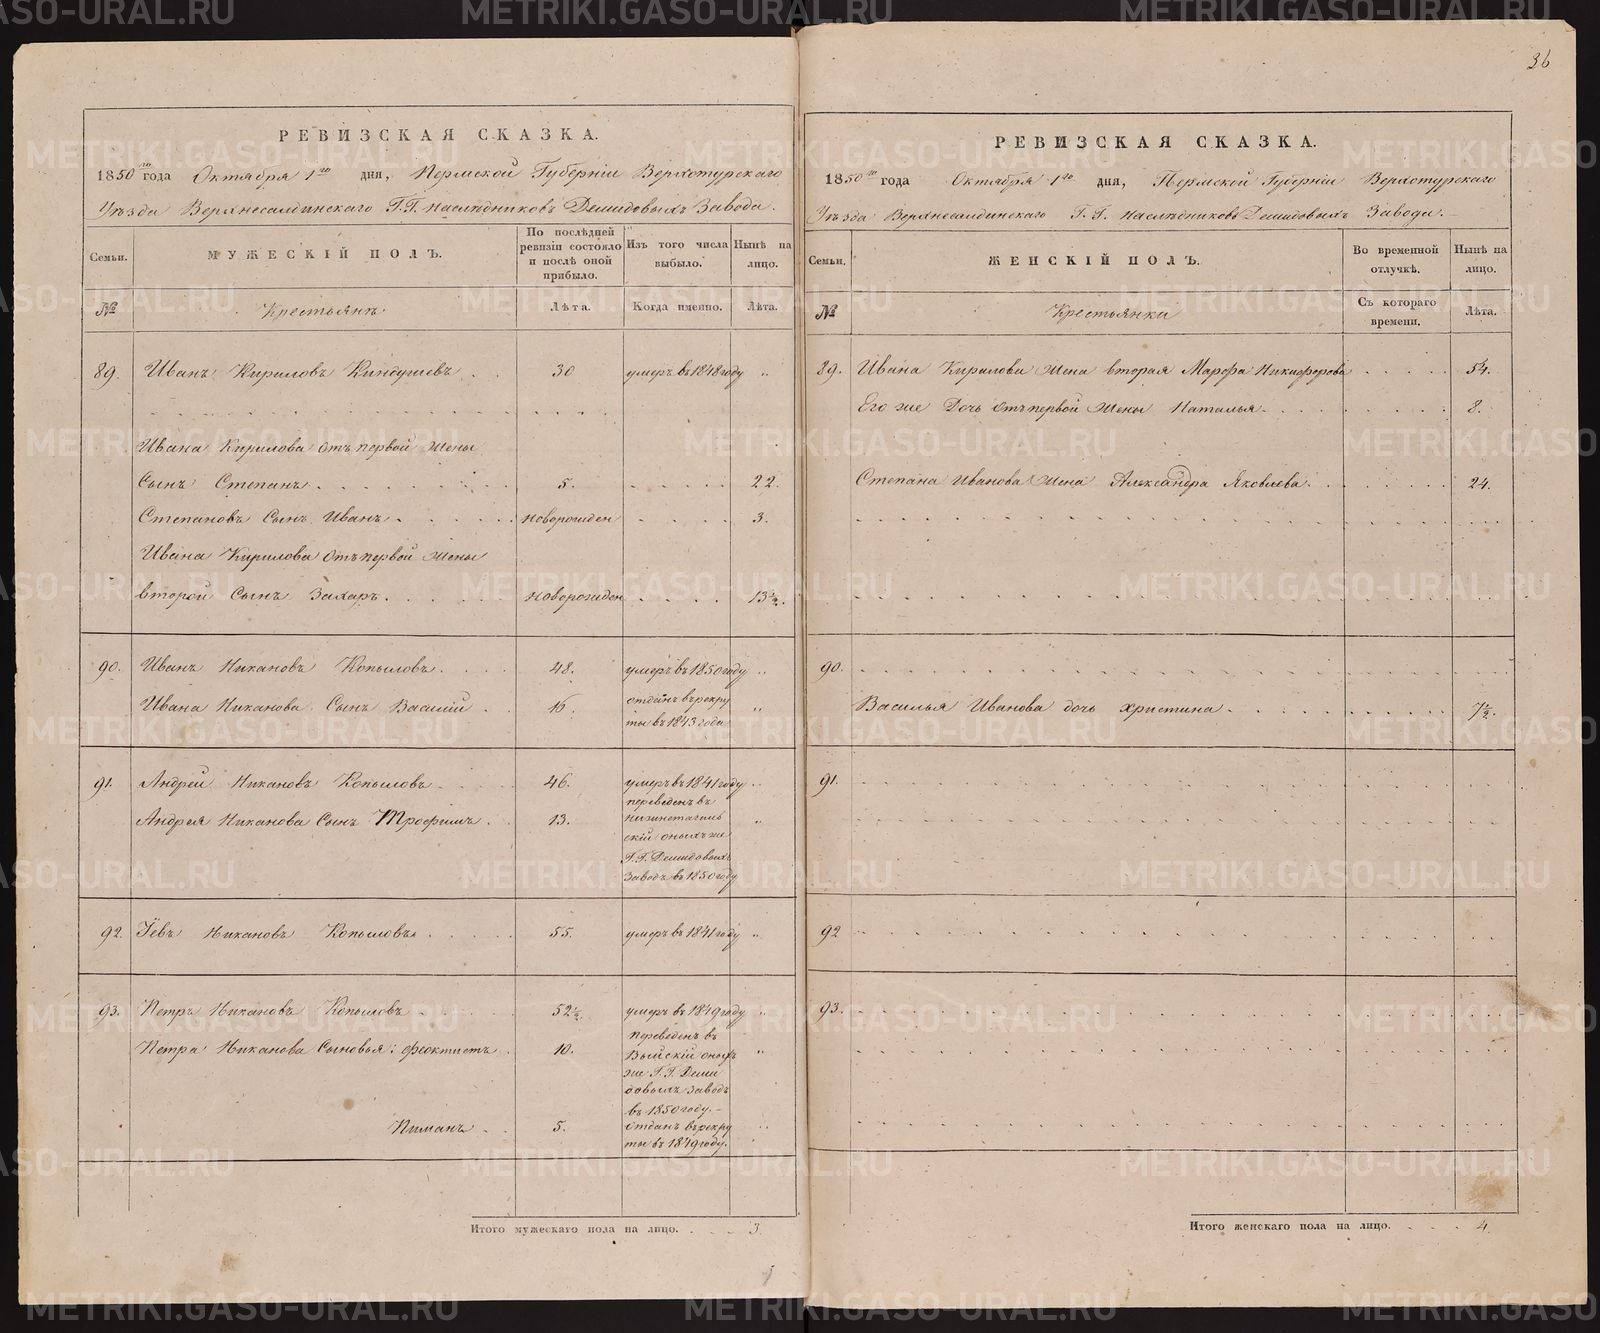 36
РЕВИЗСКАЯ СКАЗКА.
1850го года Октября 1го дня, Пермской Губерніи Верхотурскаго
Уѣзда Верхнесалдинскаго Г.Г. наслѣдниковъ Демидовыхъ Завода.
Семьи. МУЖЕСКІЙ ПОЛЪ. По послѣдней ревизіи состояло и послѣ оной прибыло. Изъ того числа выбыло. Нынѣ на лицо.
№ Крестьянъ Лѣта. Когда именно. Лѣта.
89. Иванъ Кириловъ Киндушевъ 30 умеръ въ 1848 году "
Ивана Кирилова отъ первой жены
Сынъ Степанъ 5. 22.
Степановъ Сынъ Иванъ новорожден 3.
Ивана Кирилова отъ первой жены
второй Сынъ Захаръ новорожден 13½.
90. Иванъ Никановъ Копыловъ 48. умеръ въ 1850 году "
Ивана Никанова Сынъ Василій 16. отданъ въ рекру "
ты въ 1843 года
91. Андрей Никановъ Копыловъ 46. умеръ въ 1841 году "
переведенъ въ
Андрея Никанова Сынъ Трофимъ 13. нижнетагиль "
скій оныхъ же
Г.Г. Демидовыхъ
Заводъ въ 1850 году
92. Іевъ Никановъ Копыловъ 55. умеръ въ 1841 году "
93. Петръ Никановъ Копыловъ 52½. умеръ въ 1849 году "
переведенъ въ
Петра Никанова Сыновья: Феоктистъ 10. Выйскій оныхъ "
же Г.Г. Деми
довыхъ Заводъ
въ 1850 году.
Пиманъ 5. отданъ въ рекру "
ты въ 1849 году.
Итого мужескаго пола на лицо. 3
РЕВИЗСКАЯ СКАЗКА.
1850го года Октября 1го дня, Пермской Губерніи Верхотурскаго
Уѣзда Верхнесалдинскаго Г.Г. наслѣдниковъ Демидовыхъ Завода.
Семьи. ЖЕНСКІЙ ПОЛЪ. Во временной отлучкѣ. Нынѣ на лицо.
№ Крестьянки Съ котораго времени. Лѣта.
89. Ивана Кирилова жена вторая Марфа Никифорова 54.
Его же Дочь отъ первой жены Наталья 8.
Степана Иванова жена Александра Яковлева 24.
90.
Василья Иванова дочь Христина 7½.
91.
92
93.
Итого женскаго пола на лицо. 4
METRIKI.GASO-URAL.RU